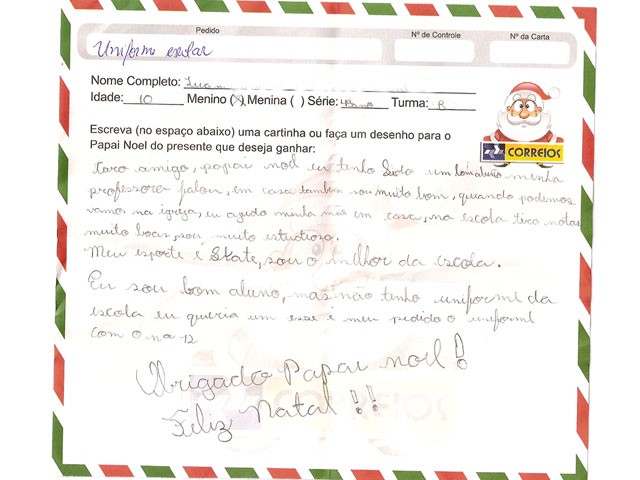 Pedido
Nº de Controle
Nº da Carta
Uniforme escolar
Nome Completo: Juan
Idade: 10 Menino (X) Menina ( ) Série: 4º ano Turma: B
Escreva (no espaço abaixo) uma cartinha ou faça um desenho para o
Papai Noel do presente que deseja ganhar:
CORREIOS
Caro amigo, papai noel eu tenho sido um bom aluno minha
professora falou, em casa tambem sou muito bom, quando podemos
vamos na igreja, eu ajudo minha mãe em casa, na escola tiro notas
muito boas, sou muito estudioso.
Meu esporte é Skate, sou o melhor da escola.
Eu sou bom aluno, mas não tenho uniforme da
escola eu queria um esse é meu pedido o uniforme
com o no 12
Obrigado Papai noel!
Feliz Natal!!
CORREIOS